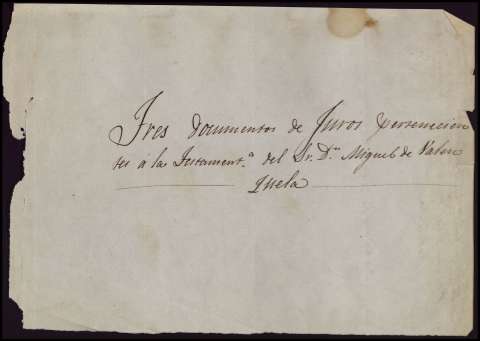 Tres documentos de Juros pertenecien
tes á la Testament.ª del Sr. Dn. Miguel de Valen
zuela